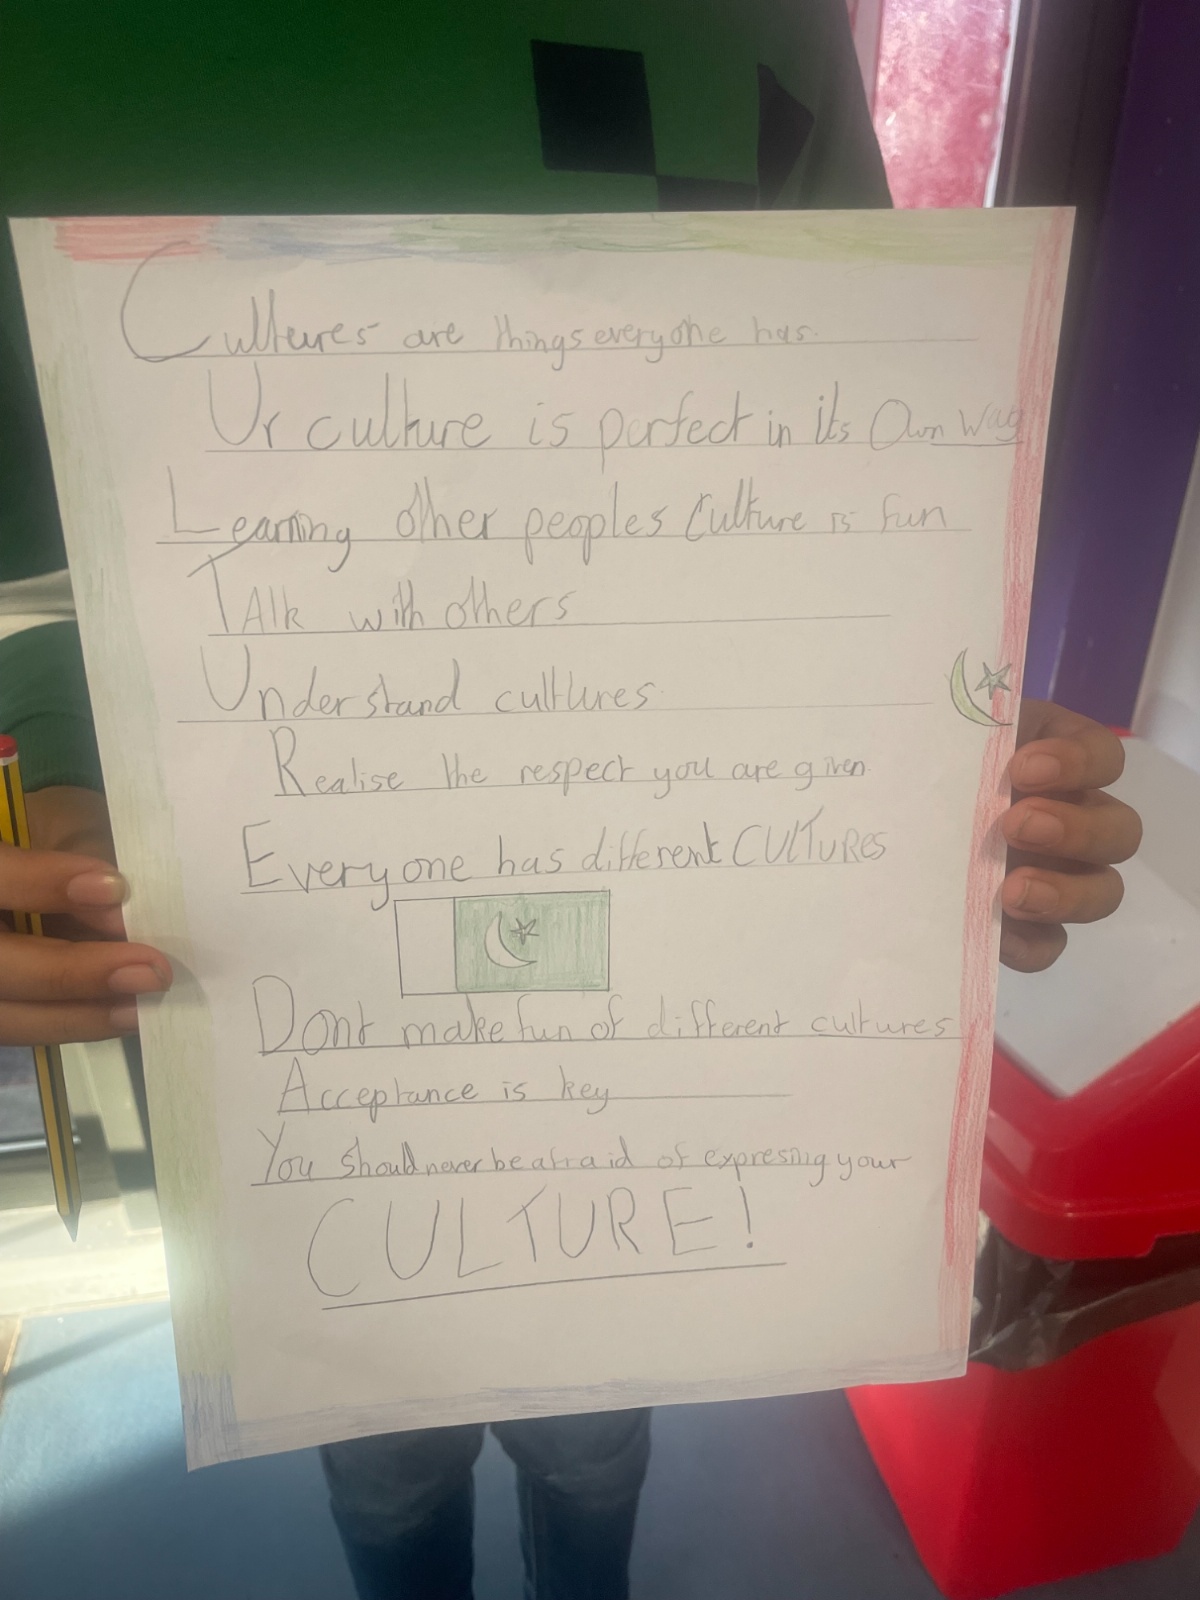 Cultures are things everyone has.
Ur culture is perfect in its Own way
Learning other peoples Culture is fun
TAlk with others
Understand cultures
Realise the respect you are given.
Everyone has different CULTURES
Dont make fun of different cultures
Acceptance is key
You should never be afraid of expresing your
CULTURE!